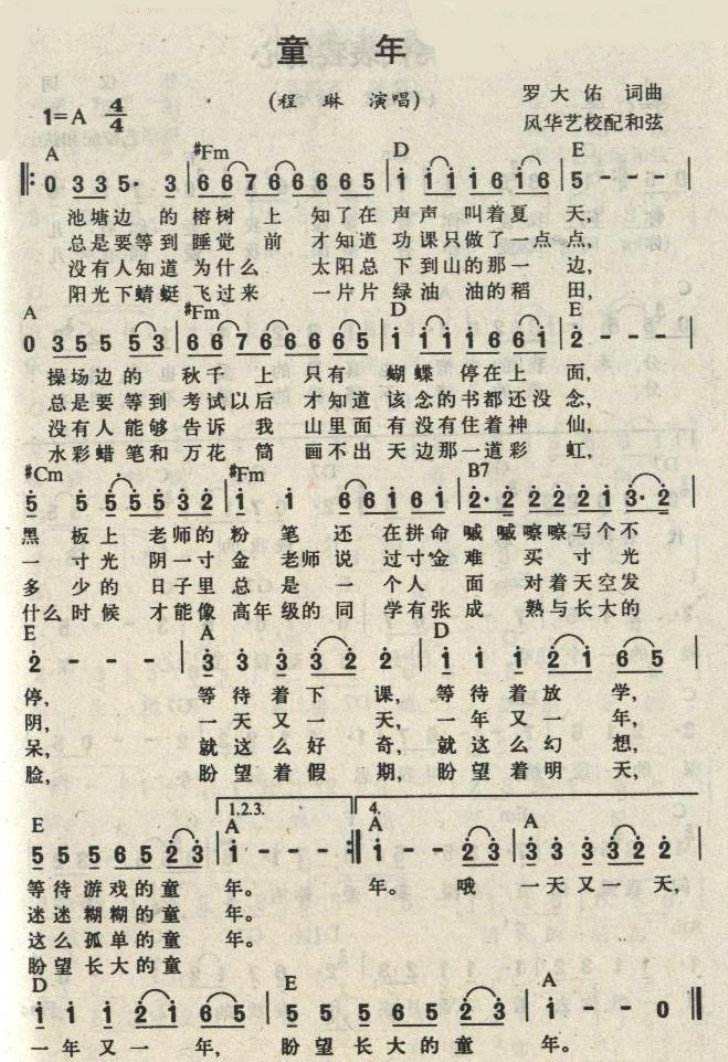 童 年
(程 琳 演唱)
罗大佑 词曲
1=A 4/4
风华艺校配和弦
A #Fm D E
0 3 3 5· 3 | 6 6 7 6 6 6 6 5 | i i i i 6 i 6 | 5 - - - |
池塘边 的 榕树 上 知了在 声声 叫着夏 天,
总是要等到 睡觉 前 才知道 功课只做了一点 点,
没有人知道 为什么 太阳总 下到山的那一 边,
阳光下蜻蜓 飞过来 一片片 绿油 油的稻 田,
A #Fm D E
0 3 5 5 5 3 | 6 6 7 6 6 6 6 5 | i i i i 6 6 i | 2 - - - |
操场边的 秋千 上 只有 蝴蝶 停在上 面,
总是要 等到 考试以后 才知道 该念的书都还没 念,
没有人 能够 告诉 我 山里面 有没有住着神 仙,
水彩蜡 笔和 万花 筒 画不出 天边那一道彩 虹,
#Cm #Fm B7
5 5 5 5 5 3 2 | i i 6 6 i 6 i | 2· 2 2 2 2 i 3· 2 |
黑 板上 老师的 粉 笔 还 在拼命 嘁 嘁嚓嚓写个不
一 寸光 阴一寸 金 老师 说 过寸金 难 买 寸 光
多 少的 日子里 总 是 一 个人 面 对着天空发
什么时候 才能像 高年级的 同 学有张 成 熟与长大的
E A D
2 - - - | 3 3 3 3 2 2 | i i i 2 i 6 5 |
停, 等待着下 课, 等待着放 学,
阴, 一天又一 天, 一年又一 年,
呆, 就这么好 奇, 就这么幻 想,
脸, 盼望着假 期, 盼望着明 天,
1.2.3. 4.
E A A A
5 5 5 6 5 2 3 | i - - - :| i - - 2 3 | 3 3 3 3 2 2 |
等待 游戏的童 年。 年。 哦 一天又一 天,
迷迷 糊糊的童 年。
这么 孤单的童 年。
盼望 长大的童
D E A
i i i 2 i 6 5 | 5 5 5 6 5 2 3 | i - - 0 ||
一年又一 年, 盼望长大的童 年。